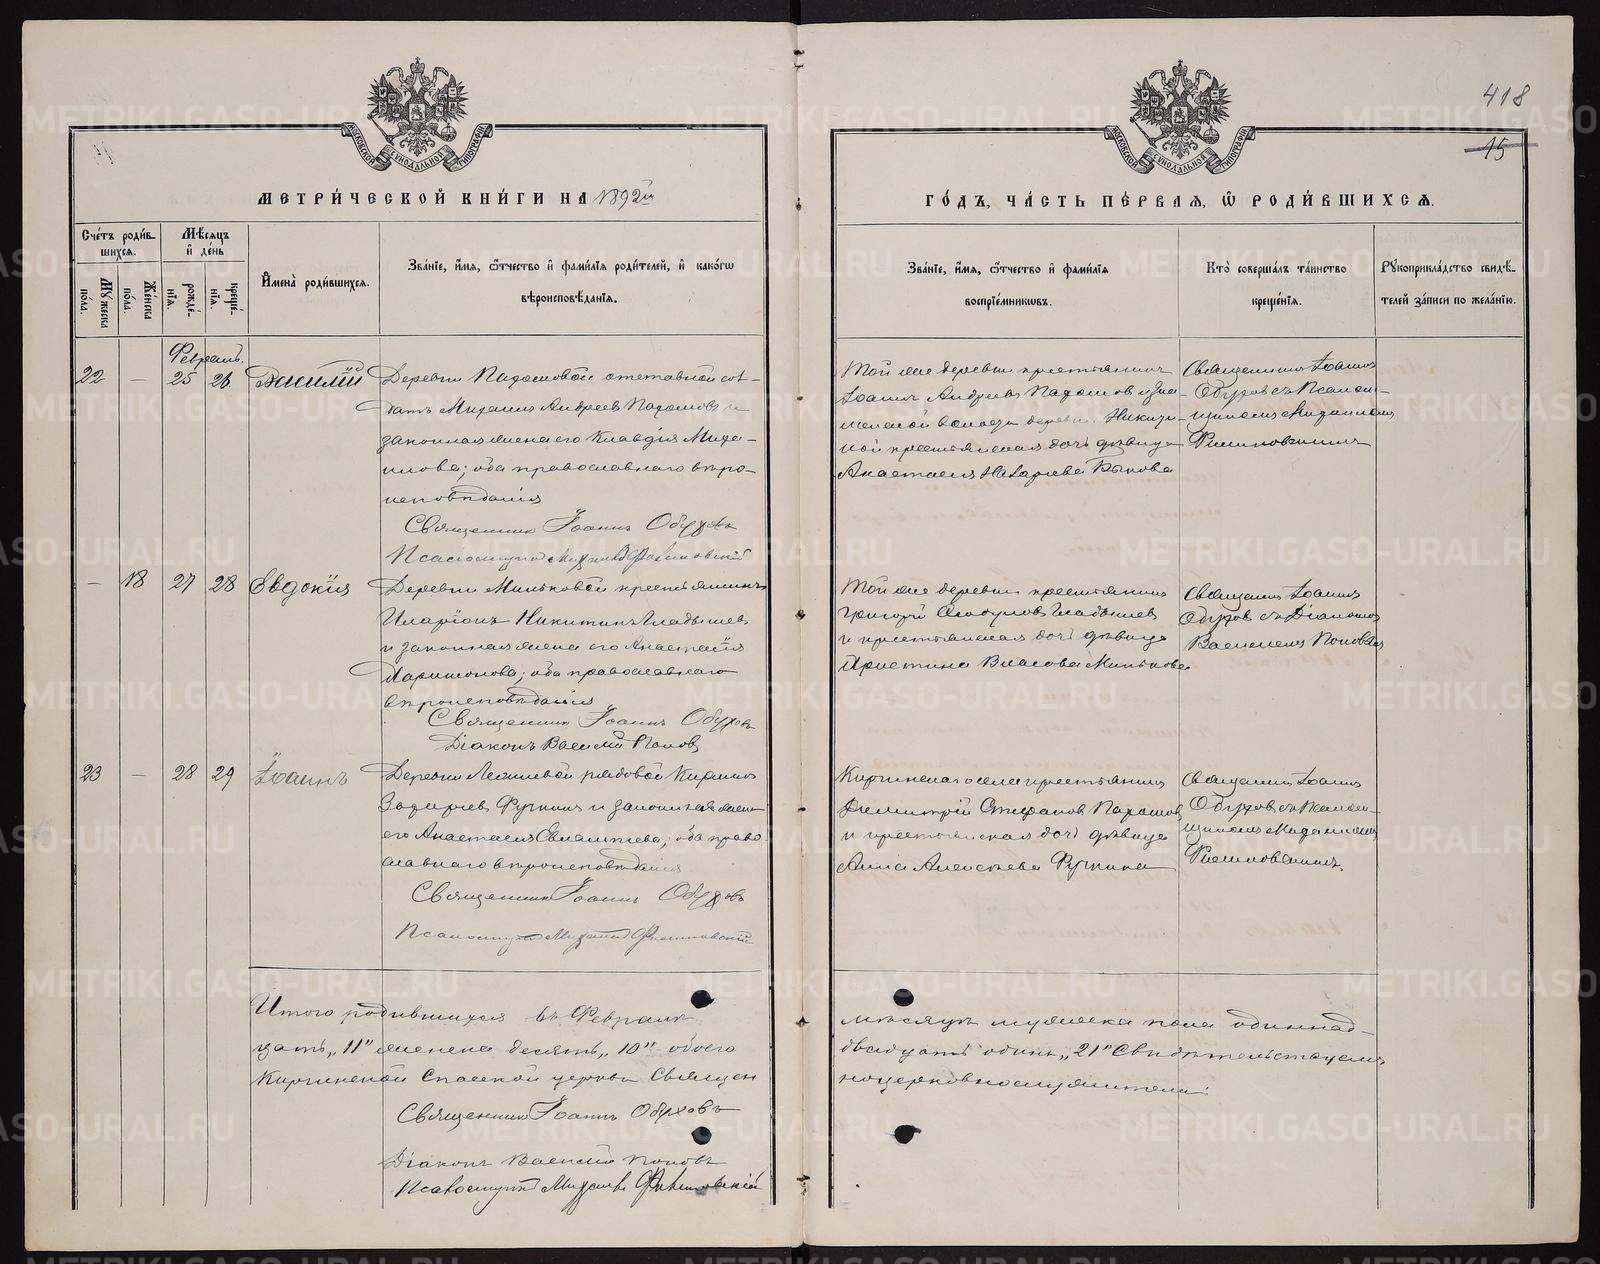 418
15
МОСКОВСКОЙ СѴНОДАЛЬНОЙ ТИПОГРАФІИ
МОСКОВСКОЙ СѴНОДАЛЬНОЙ ТИПОГРАФІИ
МЕТРИ́ЧЕСКОЙ КНИ́ГИ НА 1892й
ГО́ДЪ, ЧА́СТЬ ПЕ́РВАЯ, Ѡ РОДИ́ВШИХСЯ.
Счетъ роди́в-
шихся.
Му́жеска
по́ла.
Же́нска
по́ла.
Мѣ́сяцъ
и҆ де́нь
рожде́-
нїя.
креще́-
нїя.
И҆мена̀ роди́вшихся.
Зва́нїе, и҆́мя, ѻ҆́тчество и҆ фами́лїя роди́телей, и҆ како́гѡ
вѣроисповѣ́данїя.
Зва́нїе, и҆́мя, ѻ҆́тчество и҆ фами́лїя
воспрїе́мниковъ.
Кто̀ соверша́лъ та́инство
креще́нїя.
Рукоприкла́дство свидѣ́-
телей за́писи по жела́нїю.
Февраль.
22 — 25 26 Василій
Деревни Падаковой отставной сол-
датъ Михаилъ Андреевъ
законная жена его Клавдія Михаи-
лова; оба православнаго вѣро-
исповѣданія
Священникъ Іоаннъ Обуховъ
Псаломщикъ Михаилъ
Той же деревни крестьянинъ
Іоаннъ Андреевъ
волости деревни
крестьянская дочь дѣвица
Анастасія Назарьева Быкова
Священникъ Іоаннъ
Обуховъ съ Псалом-
щикомъ Михаиломъ
— 18 27 28 Евдокія
Деревни Мильковой крестьянинъ
Иларіонъ Никитинъ Гладышев
и законная жена его Анастасія
Ларионова; оба православнаго
вѣроисповѣданія
Священникъ Іоаннъ Обуховъ
Діаконъ Василій Поповъ
Той же деревни крестьянинъ
Григорій Гладышев
и крестьянская дочь дѣвица
Христина Власова Милькова
Священникъ Іоаннъ
Обуховъ съ Діакономъ
Василіемъ Поповымъ
23 — 28 29 Іоаннъ
Деревни рядовой
Ручкинъ и законная жена
его Анастасія; оба право-
славнаго вѣроисповѣданія
Священникъ Іоаннъ Обуховъ
Псаломщикъ Михаилъ
Киргинскаго села крестьянинъ
Димитрій Стефановъ
и крестьянская дочь дѣвица
Анна Алексѣева Ручкина
Священникъ Іоаннъ
Обуховъ съ Псалом-
щикомъ Михаиломъ
Итого родившихся въ Февралѣ
мѣсяцѣ мужеска пола одиннад-
цать „11" женска десять „10" обоего
двадцать одинъ „21" Свидѣтельствуемъ
Киргинской Спасской церкви Священ
Священникъ Іоаннъ Обуховъ
Діаконъ Василій Поповъ
Псаломщикъ Михаилъ
METRIKI.GASO-URAL.RU